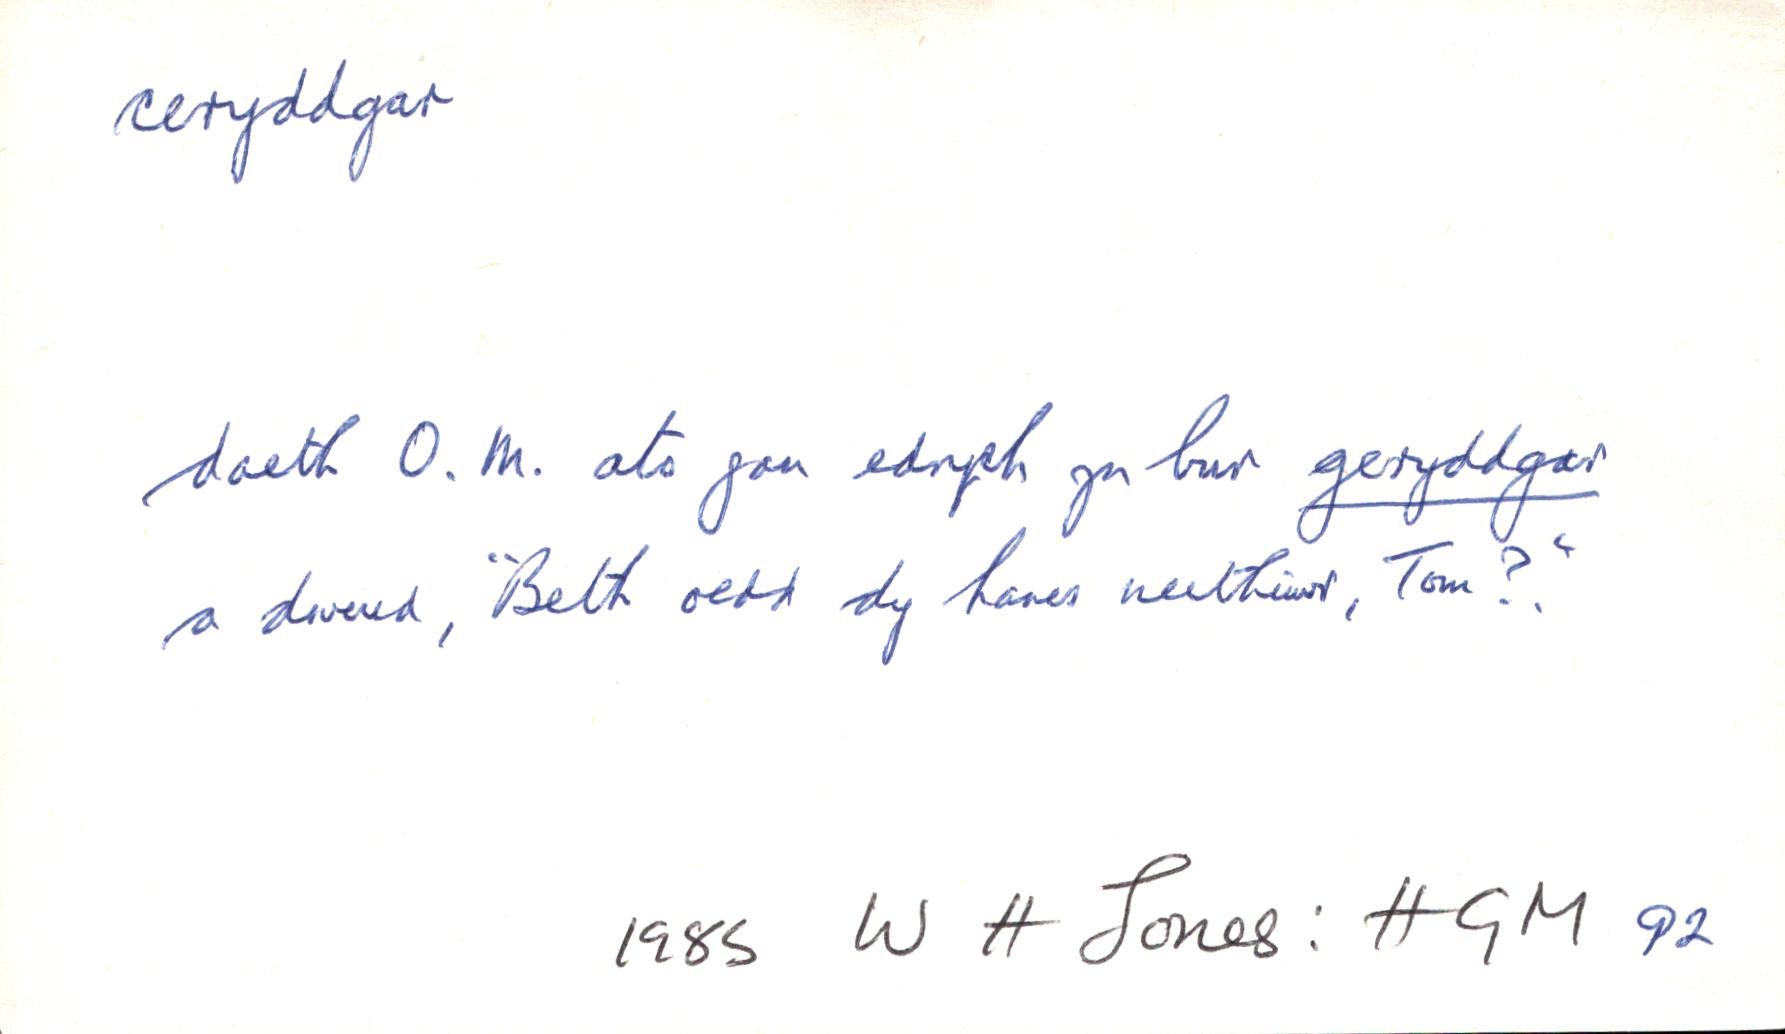 ceryddgar
daeth O. M. ato gan edrych yn bur geryddgar
a dweud, "Beth oedd dy hanes neithiwr, Tom?."
1985 W H Jones: HGM 92